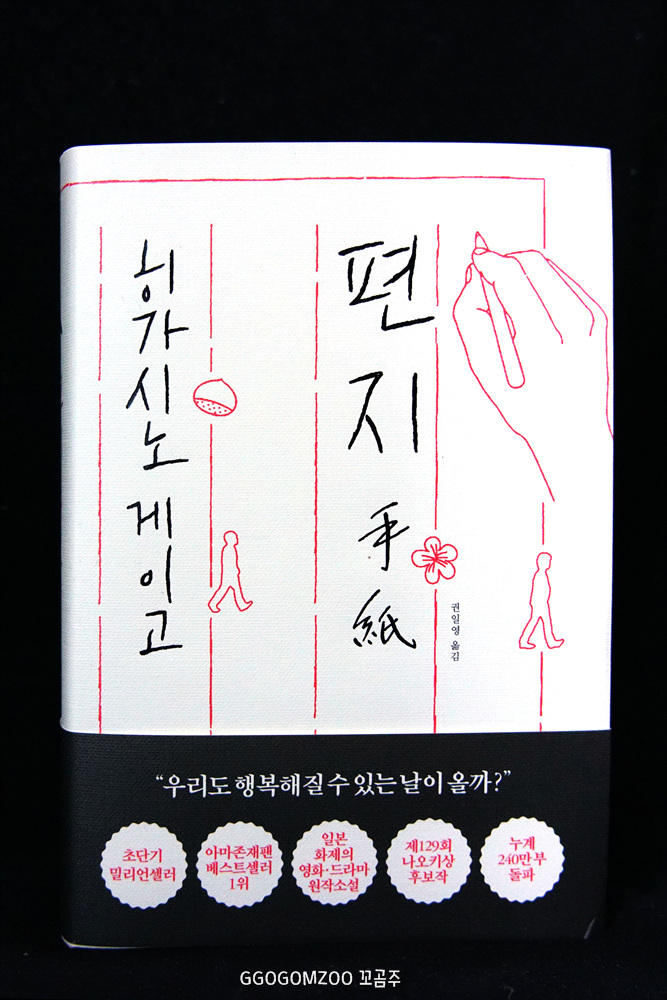 편지
手紙
권일영 옮김
히가시노 게이고
“우리도 행복해질 수 있는 날이 올까?”
초단기
밀리언셀러
아마존재팬
베스트셀러
1위
일본
화제의
영화·드라마
원작소설
제129회
나오키상
후보작
누계
240만 부
돌파
GGOGOMZOO 꼬곰주